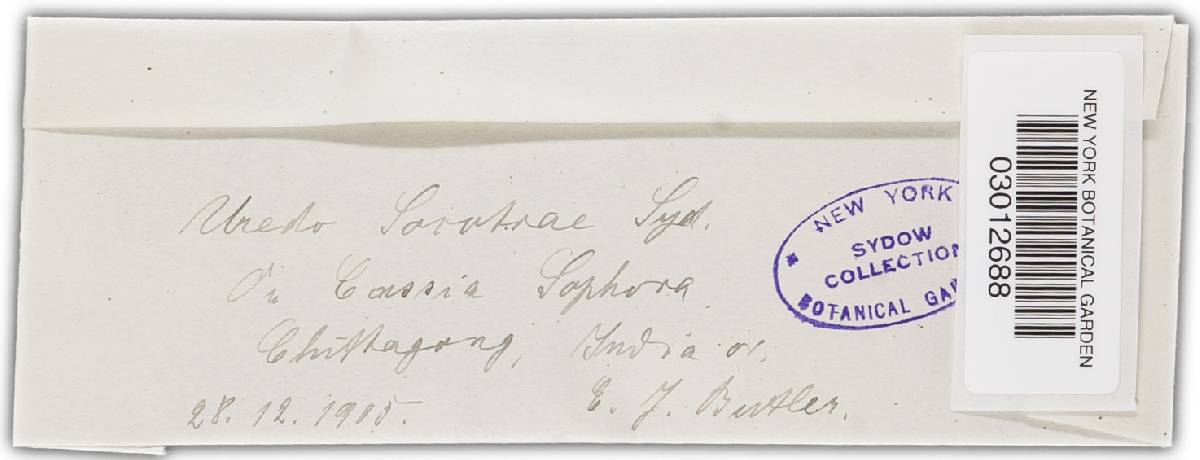 Uredo Socotrae Syd.
On Cassia Sophora
Chittagong, India or.
28. 12. 1905.
E. J. Butler.
NEW YORK
SYDOW
COLLECTION
BOTANICAL GAR
NEW YORK BOTANICAL GARDEN
03012688